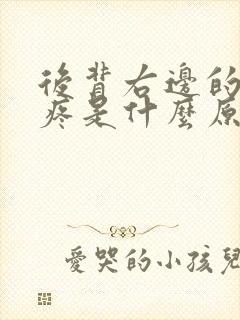 後背右邊的
疼是什麼原
愛哭的小孩兒